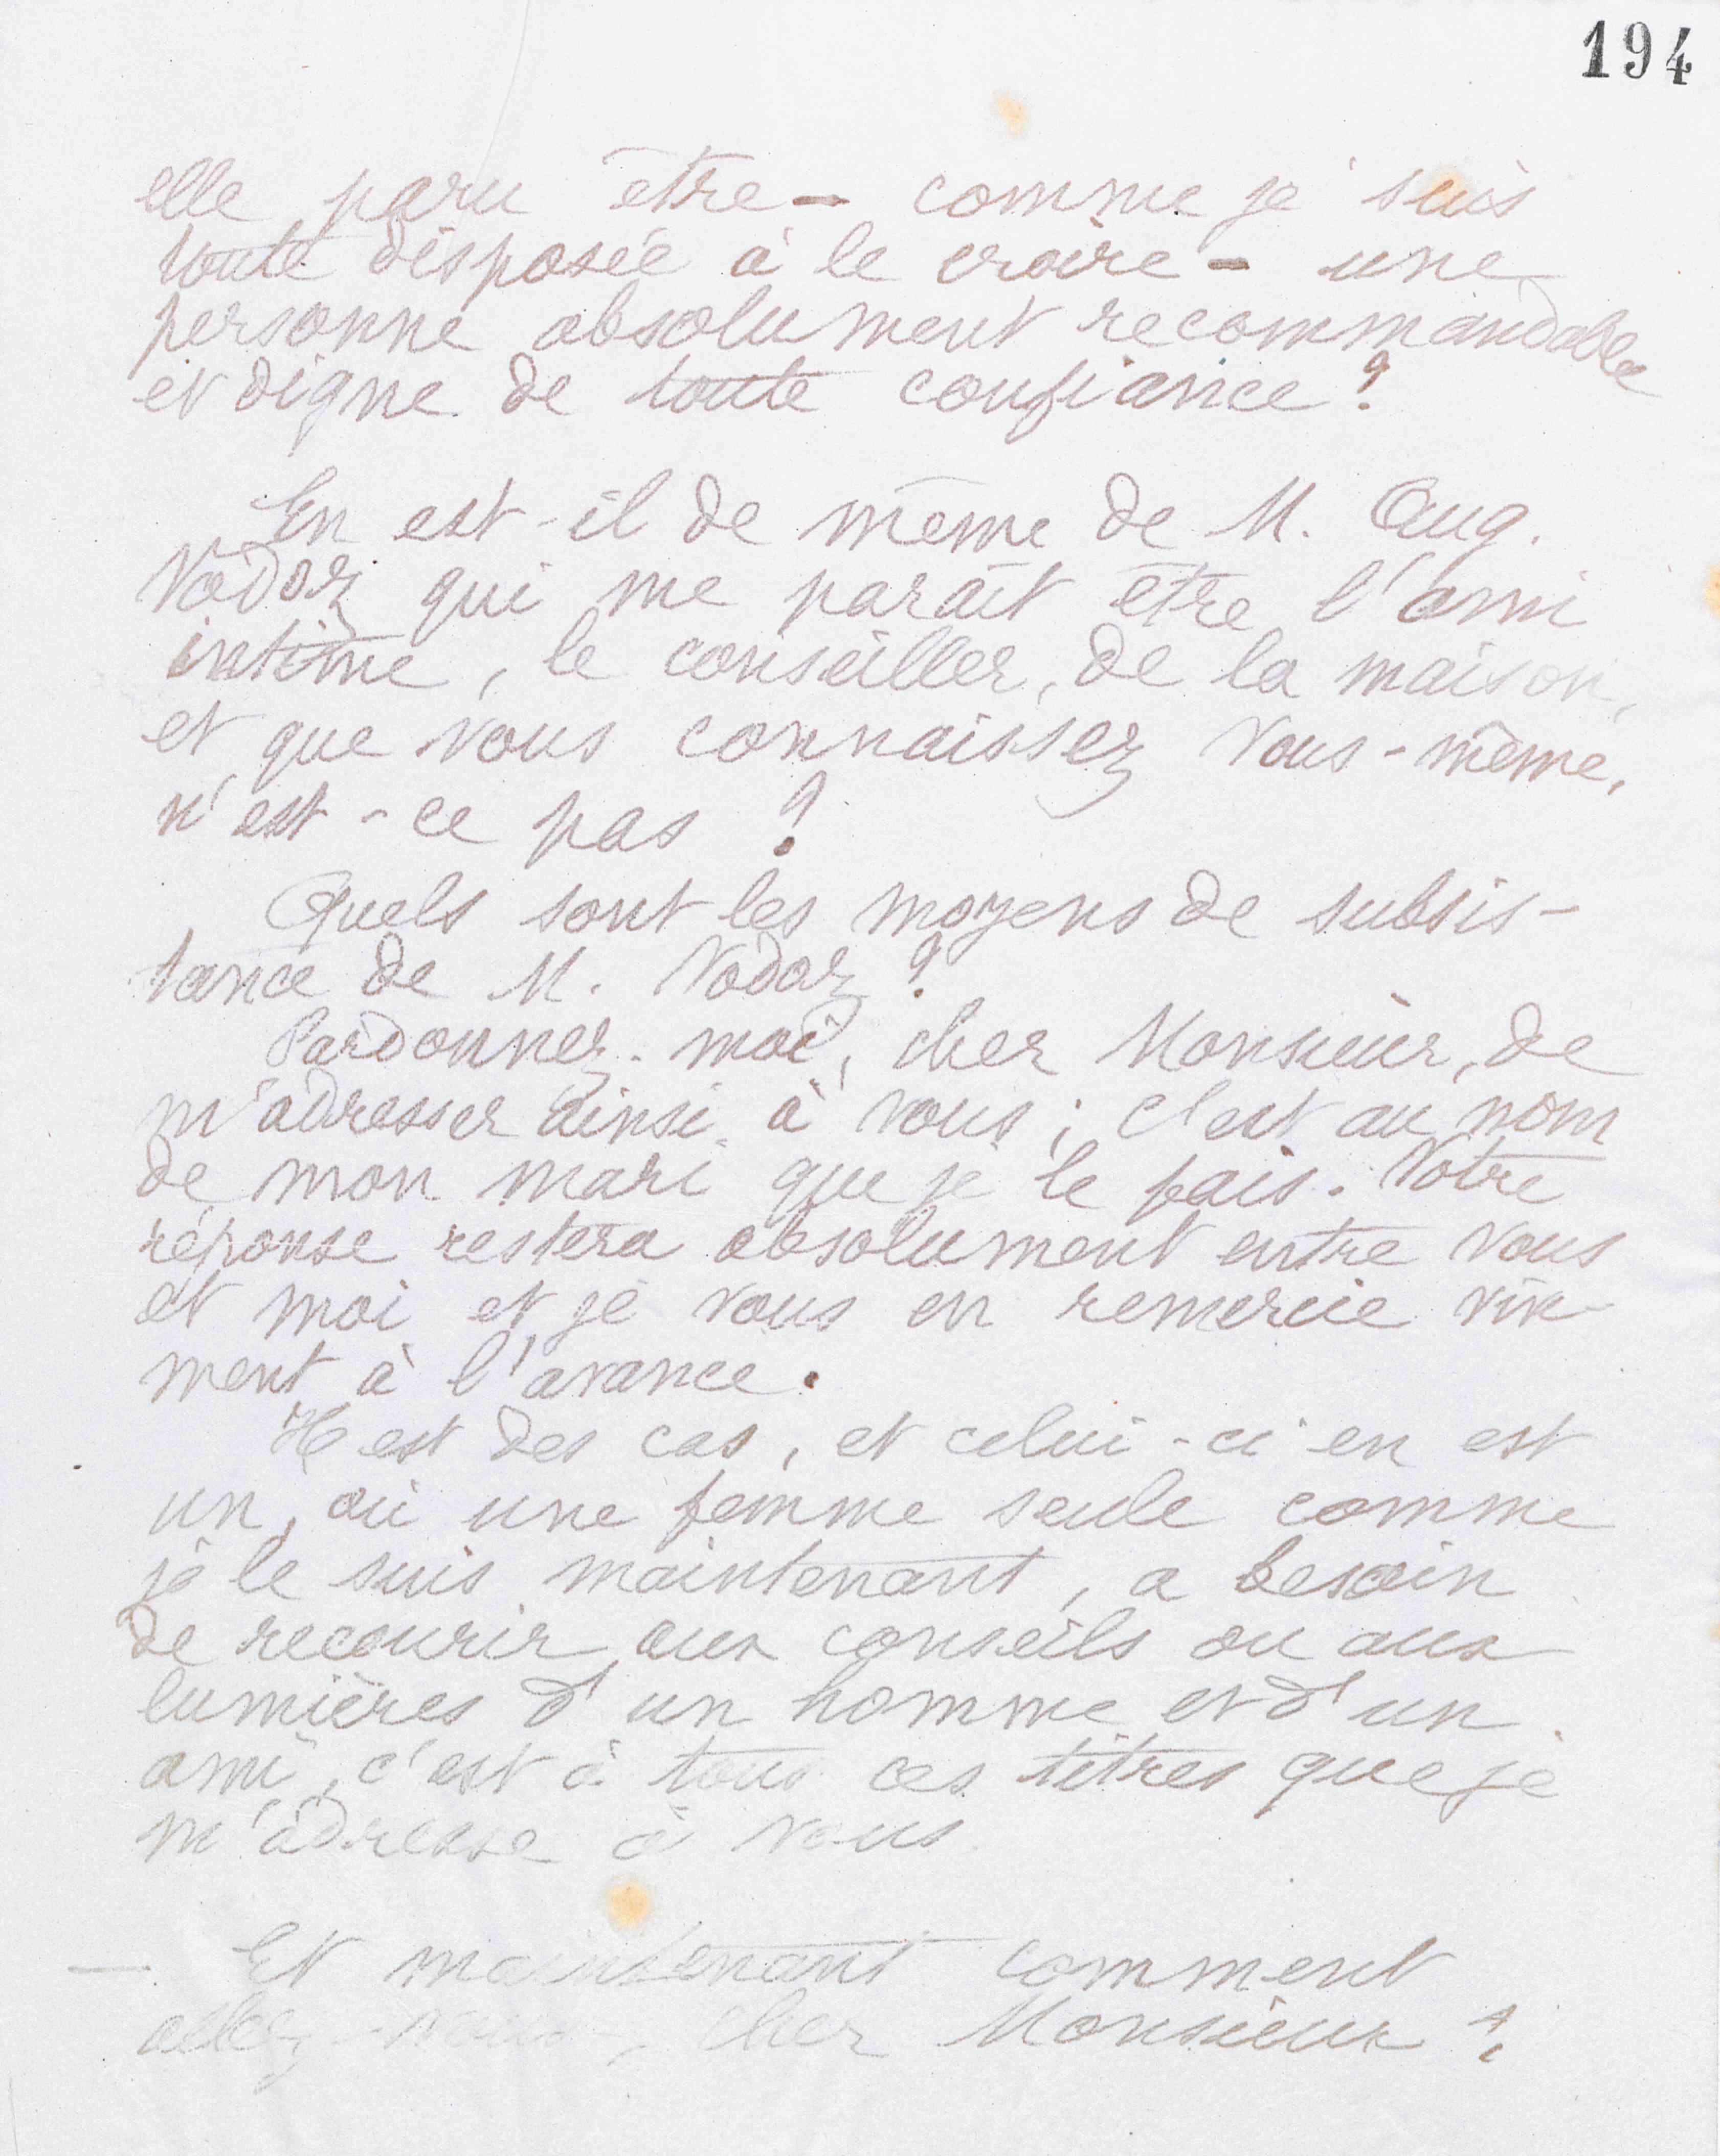 194
elle paru être - comme je suis
toute disposée à le croire - une
personne absolument recommandable
et digne de toute confiance ?
En est-il de même de M. Aug.
Vodoz qui me paraît être l'ami
intime, le conseiller, de la maison,
et que vous connaissez vous-même,
n'est-ce pas ?
Quels sont les moyens de subsis-
tance de M. Vodoz ?
Pardonnez-moi, cher Monsieur, de
m'adresser ainsi à vous ; c'est au nom
de mon mari que je le fais. Votre
réponse restera absolument entre vous
et moi et je vous en remercie vive-
ment à l'avance.
Il est des cas, et celui-ci en est
un, où une femme seule comme
je le suis maintenant, a besoin
de recourir aux conseils ou aux
lumières d'un homme et d'un
ami, c'est à tous ces titres que je
m'adresse à vous
Et maintenant comment
allez-vous, cher Monsieur ?